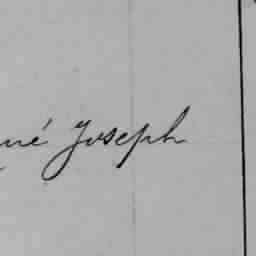 né Joseph